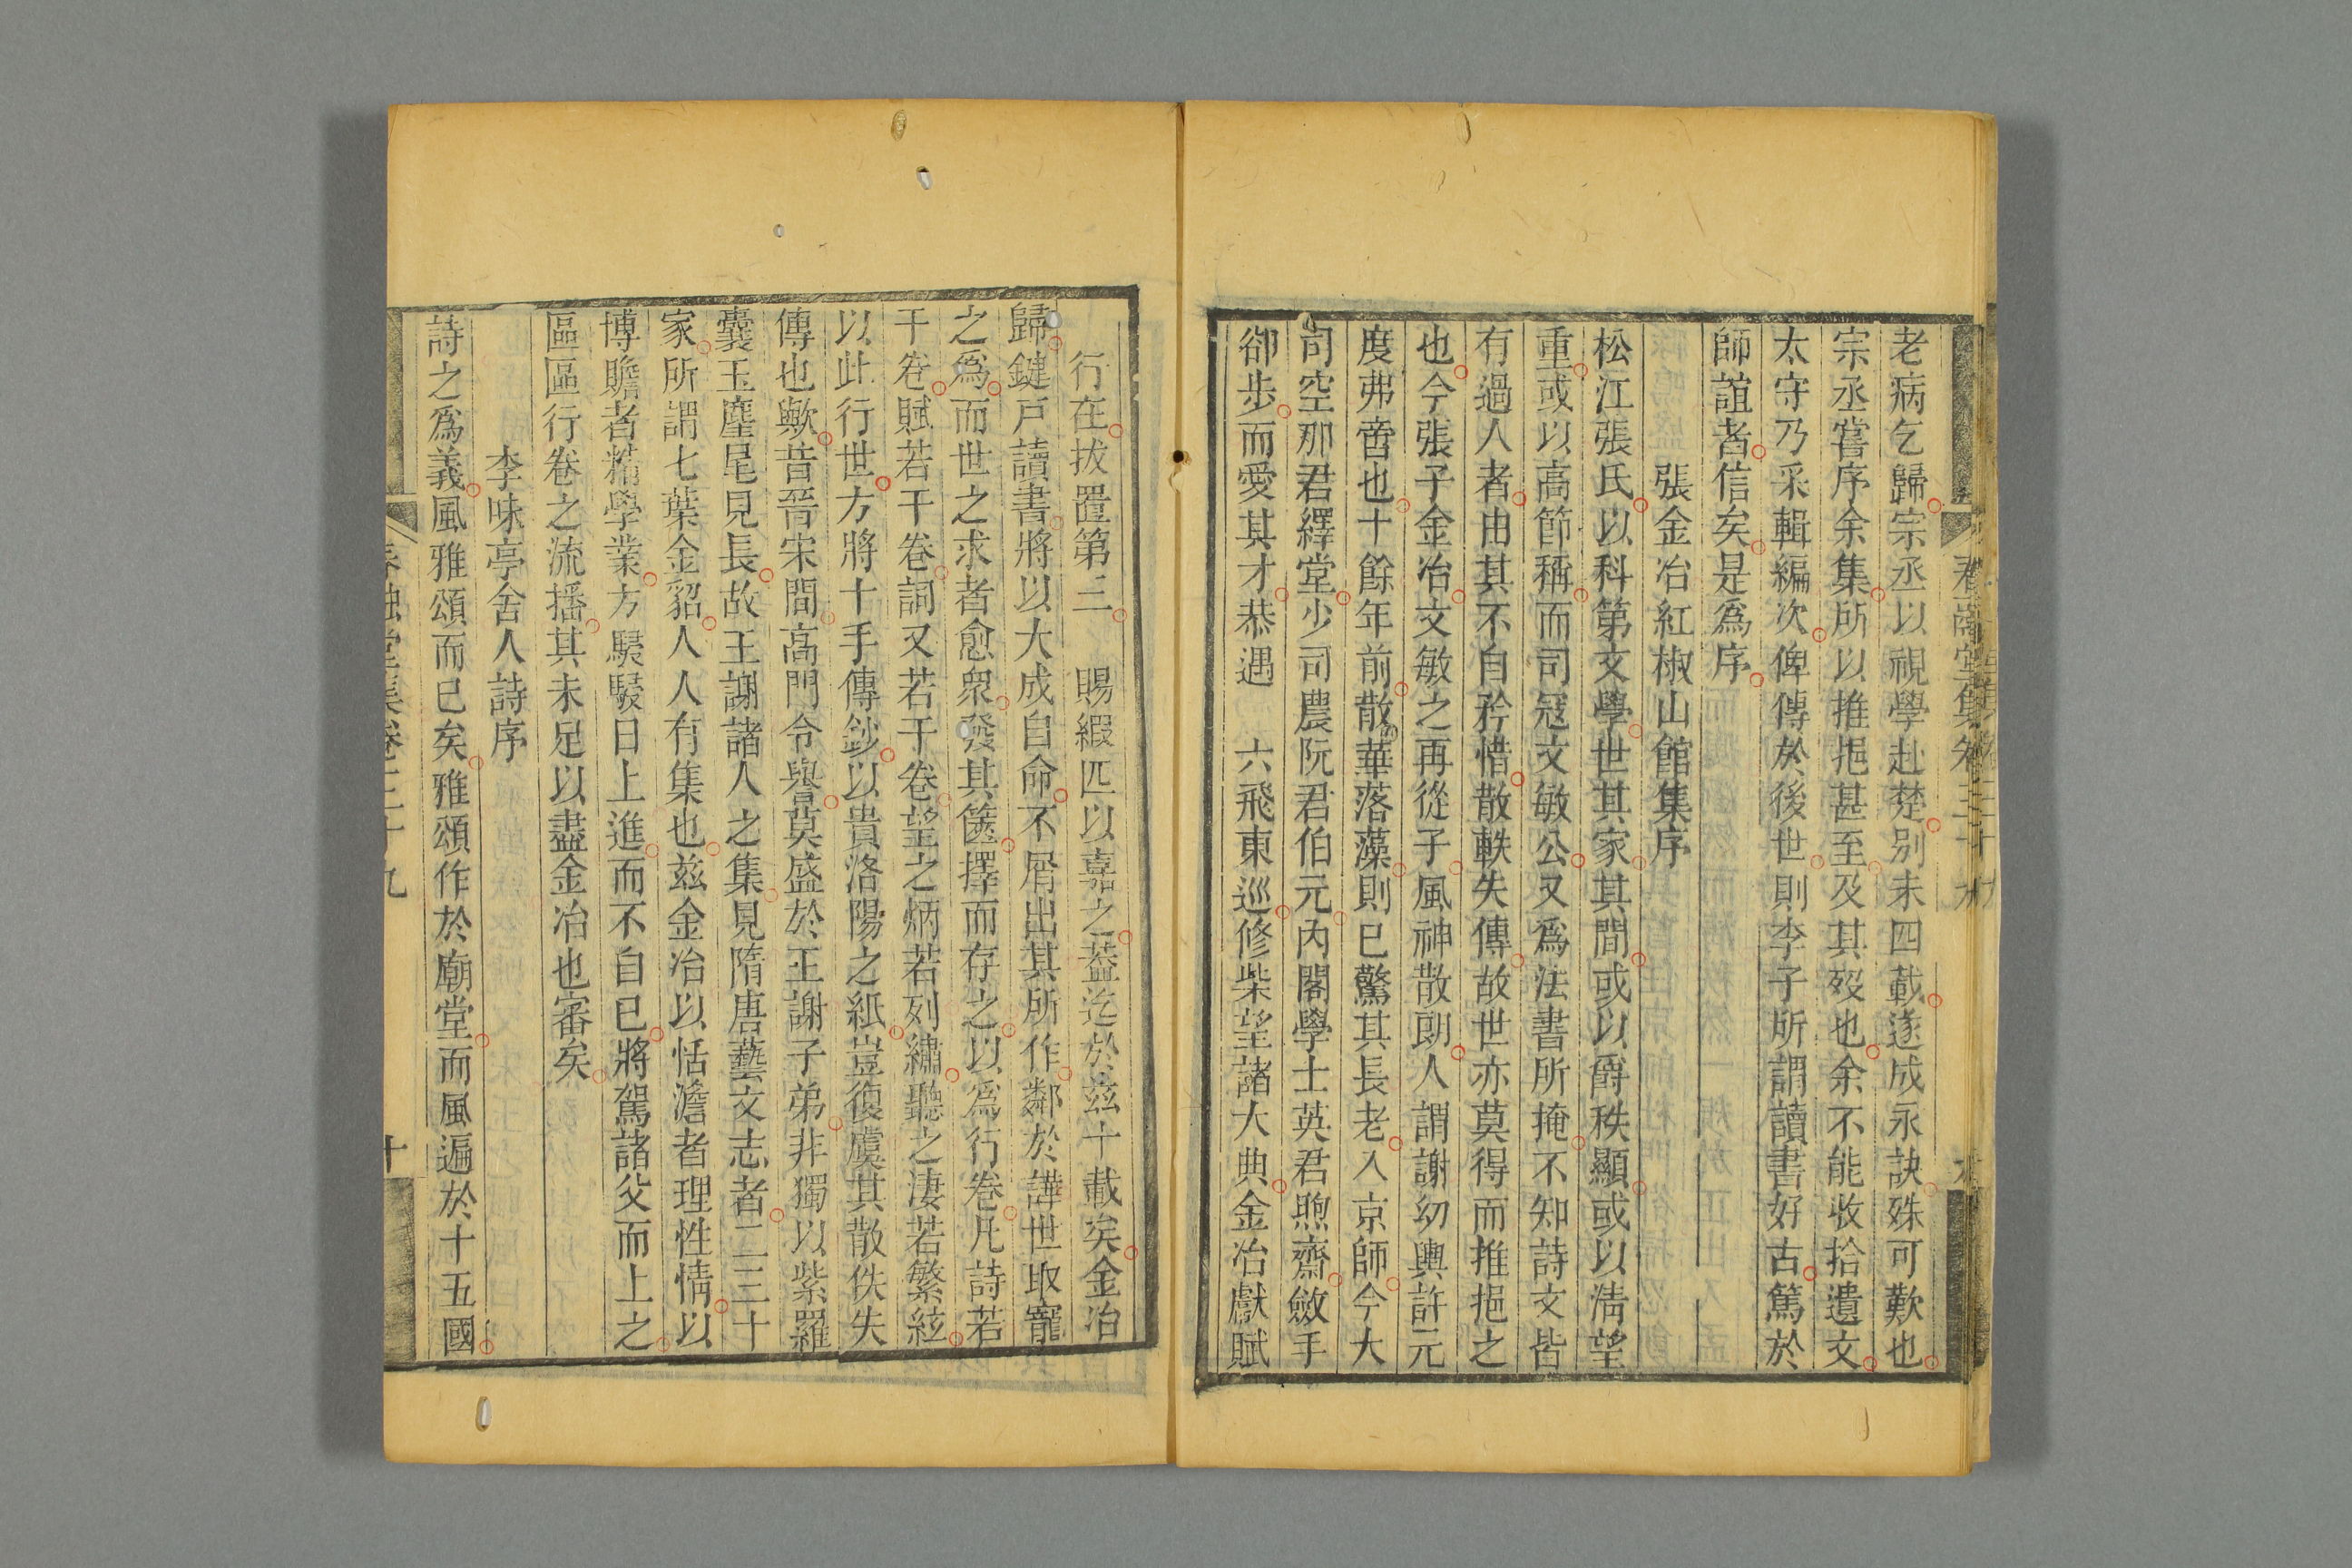 老病乞歸宗丞以視學赴楚別未四載遂成永訣殊可歎也
宗丞嘗序余集所以推挹甚至及其歿也余不能收拾遺文
太守乃采輯編次俾傳於後世則李子所謂讀書好古篤於
師誼者信矣是爲序
張金冶紅椒山館集序
松江張氏以科第文學世其家其間或以爵秩顯或以淸望
重或以高節稱而司冦文敏公又爲法書所掩不知詩文皆
有過人者由其不自矜惜散軼失傳故世亦莫得而推挹之
也今張子金冶文敏之再從子風神散朗人謂謝幼輿許元
度弗啻也十餘年前散華落藻則已驚其長老入京師今大
司空那君繹堂少司農阮君伯元內閣學士英君煦齋斂手
卻步而愛其才恭遇 六飛東巡修柴望諸大典金冶獻賦
行在拔置第三 賜緞匹以嘉之蓋迄於兹十載矣金冶
歸鍵戸讀書將以大成自命不屑出其所作鄰於譁世取寵
之爲而世之求者愈衆發其篋擇而存之以爲行卷凡詩若
干卷賦若干卷詞又若干卷望之炳若列繡聽之淒若繁絃
以此行世方將十手傳鈔以貴洛陽之紙豈復虞其散佚失
傳也歟昔晉宋間高門令譽莫盛於王謝子弟非獨以紫羅
囊玉麈尾見長故王謝諸人之集見隋唐藝文志者二三十
家所謂七葉金貂人人有集也兹金冶以恬澹者理性情以
博贍者精學業方駸駸日上進而不自已將駕諸父而上之
區區行卷之流播其未足以盡金冶也審矣
李味亭舍人詩序
詩之爲義風雅頌而已矣雅頌作於廟堂而風遍於十五國
春融堂集卷三十九
十